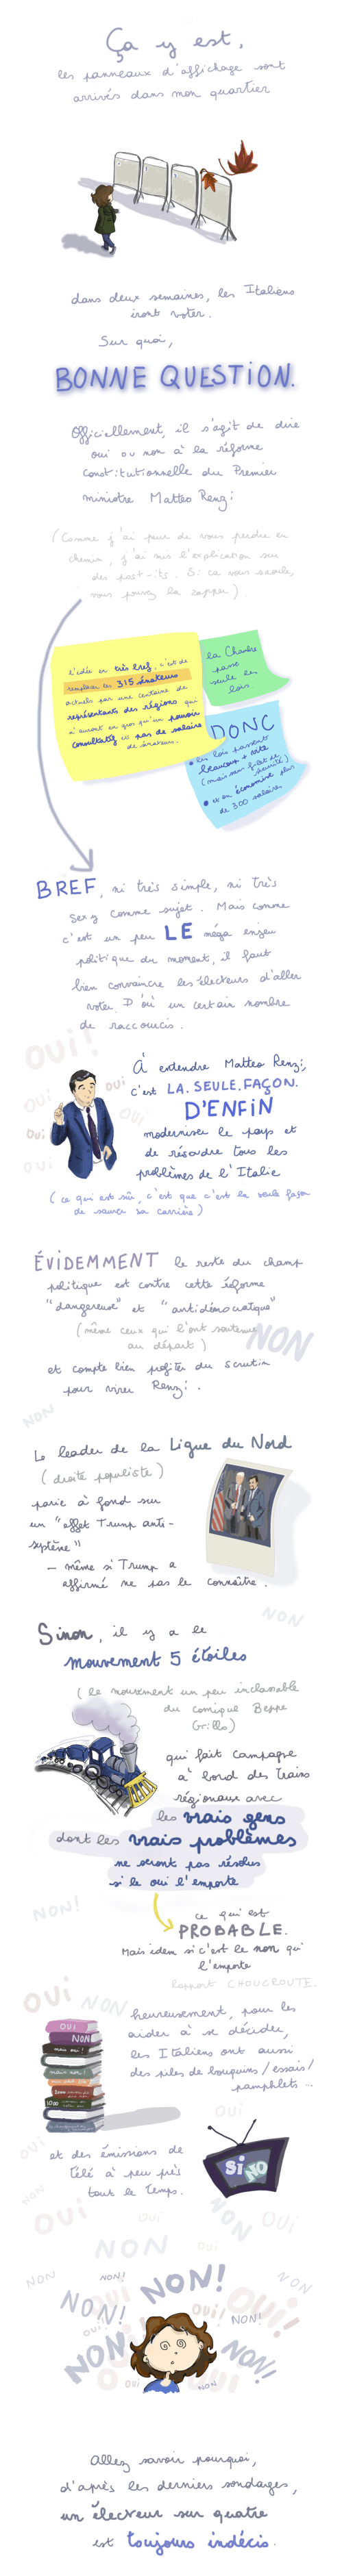 Ça y est,
les panneaux d'affichage sont
arrivés dans mon quartier
dans deux semaines, les Italiens
iront voter.
Sur quoi,
BONNE QUESTION.
Officiellement, il s'agit de dire
oui ou non à la réforme
constitutionnelle du Premier
ministre Matteo Renzi
(Comme j'ai peur de vous perdre en
chemin, j'ai mis l'explication sur
des post-its. Si ça vous saoule,
vous pouvez la zapper).
l'idée en très bref, c'est de
remplacer les 315 sénateurs
actuels par une centaine de
représentants des régions qui
n'auront en gros qu'un pouvoir
consultatif et pas de salaire
de sénateurs.
la Chambre
passe
seule les
lois.
DONC
• les lois passent
beaucoup + vite
(mais sans filet de
sécurité)
• et on économise plus
de 300 salaires
BREF, ni très simple, ni très
sexy comme sujet. Mais comme
c'est un peu LE méga enjeu
politique du moment, il faut
bien convaincre les électeurs d'aller
voter. D'où un certain nombre
de raccourcis.
OUI!
OUI
OUI
OUI
OUI
OUI
À entendre Matteo Renzi,
c'est LA.SEULE.FAÇON.
D'ENFIN
moderniser le pays et
de résoudre tous les
problèmes de l'Italie
(ce qui est sûr, c'est que c'est la seule façon
de sauver sa carrière)
ÉVIDEMMENT le reste du champ
politique est contre cette réforme
"dangereuse" et "antidémocratique"
(même ceux qui l'ont soutenue
au départ)
NON
et compte bien profiter du scrutin
pour virer Renzi.
NON
Le leader de la Ligue du Nord
(droite populiste)
parie à fond sur
un "effet Trump anti-
système"
– même si Trump a
affirmé ne pas le connaître.
NON
Sinon, il y a le
mouvement 5 étoiles
(le mouvement un peu inclassable
du comique Beppe
Grillo)
qui fait campagne
à bord des trains
régionaux avec
les vrais gens
dont les vrais problèmes
ne seront pas résolus
si le oui l'emporte
NON!
ce qui est
PROBABLE.
Mais idem si c'est le non qui
l'emporte
Rapport CHOUCROUTE.
OUI
NON
heureusement, pour les
aider à se décider,
les Italiens ont aussi
des piles de bouquins / essais /
pamphlets ...
OUI
NON
OUI
et des émissions de
télé à peu près
tout le temps.
SI
NO
OUI
NON
OUI
OUI
NON
OUI
NON
OUI
NON
NON!
NON!
NON
NON!
OUI!
OUI!
NON!
OUI
NON
NON!
OUI
OUI
NON
Allez savoir pourquoi,
d'après les derniers sondages,
un électeur sur quatre
est toujours indécis.